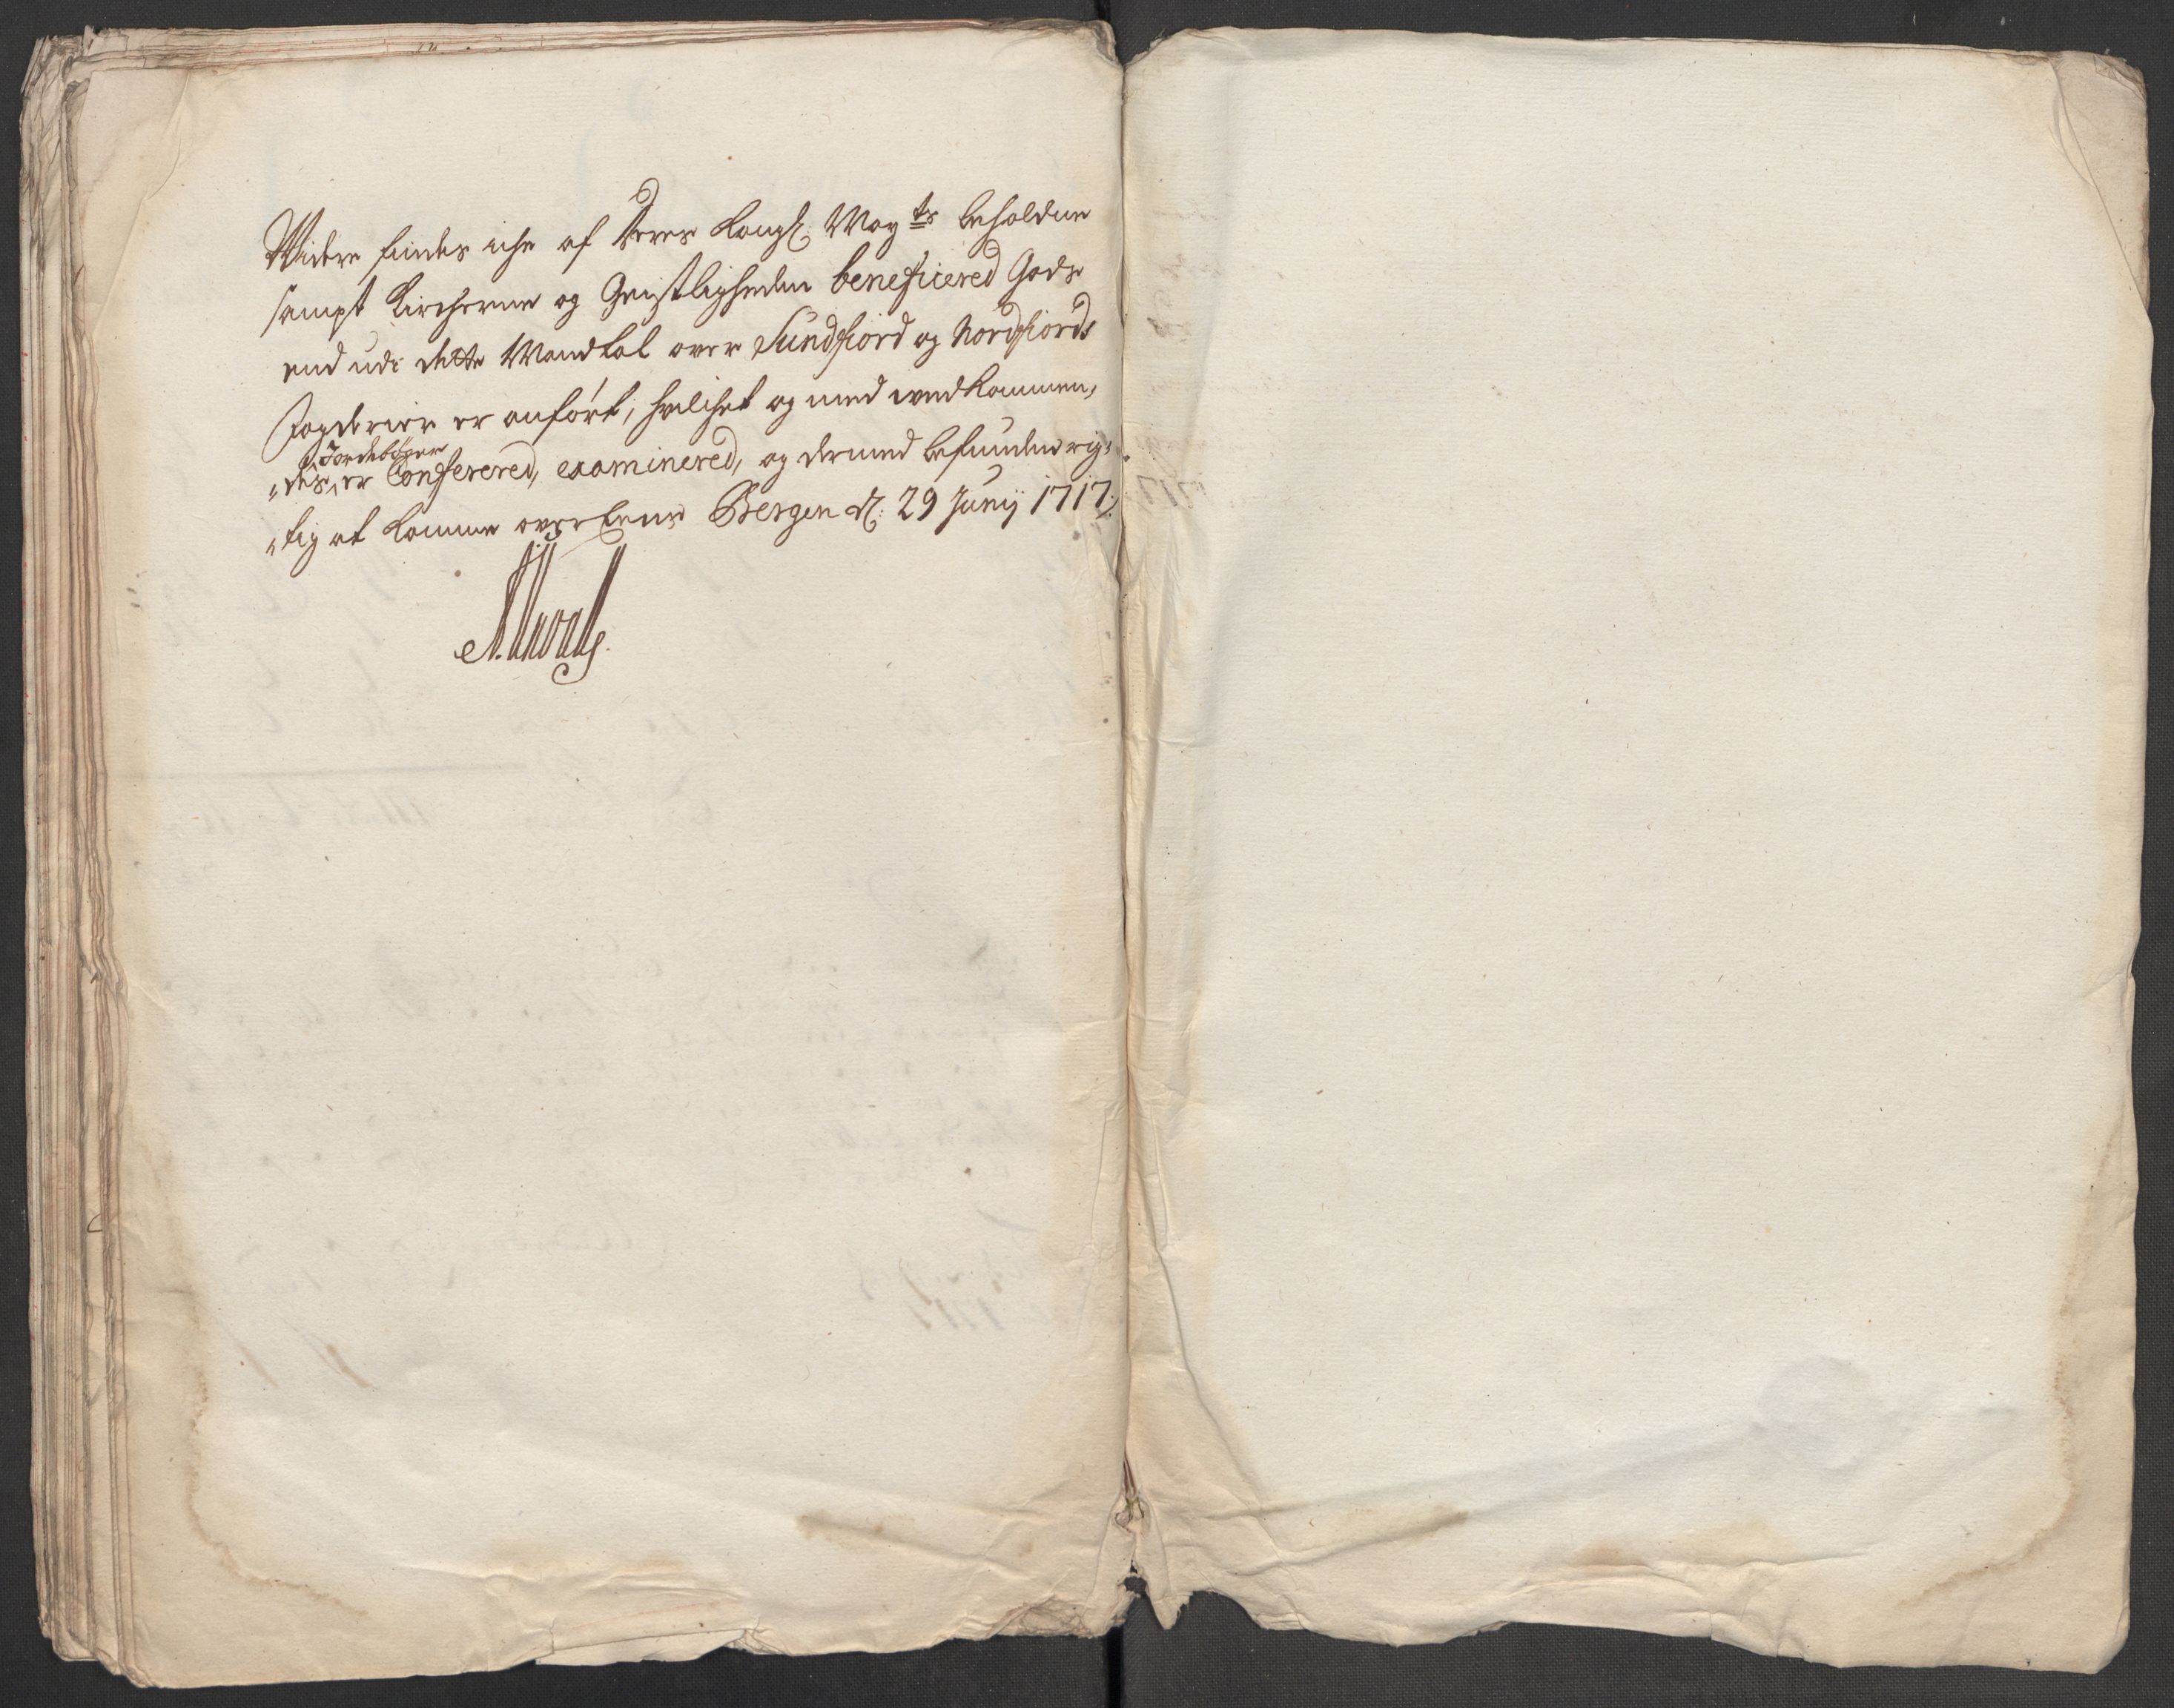 Widere findes iche af Deres Kongl: May^ts beholdne
sampt Kircherne og Geistligheden beneficered Gods
end udi dette Mandtal over Sundfiord og Nordfiords
Fogderier er anført, hvilchet og med vedkommen,
"des Jordebøger er Conferered, examinered, og dermed befunden rig,
"tig at komme over Eens Bergen d: 29 Junij 1717,